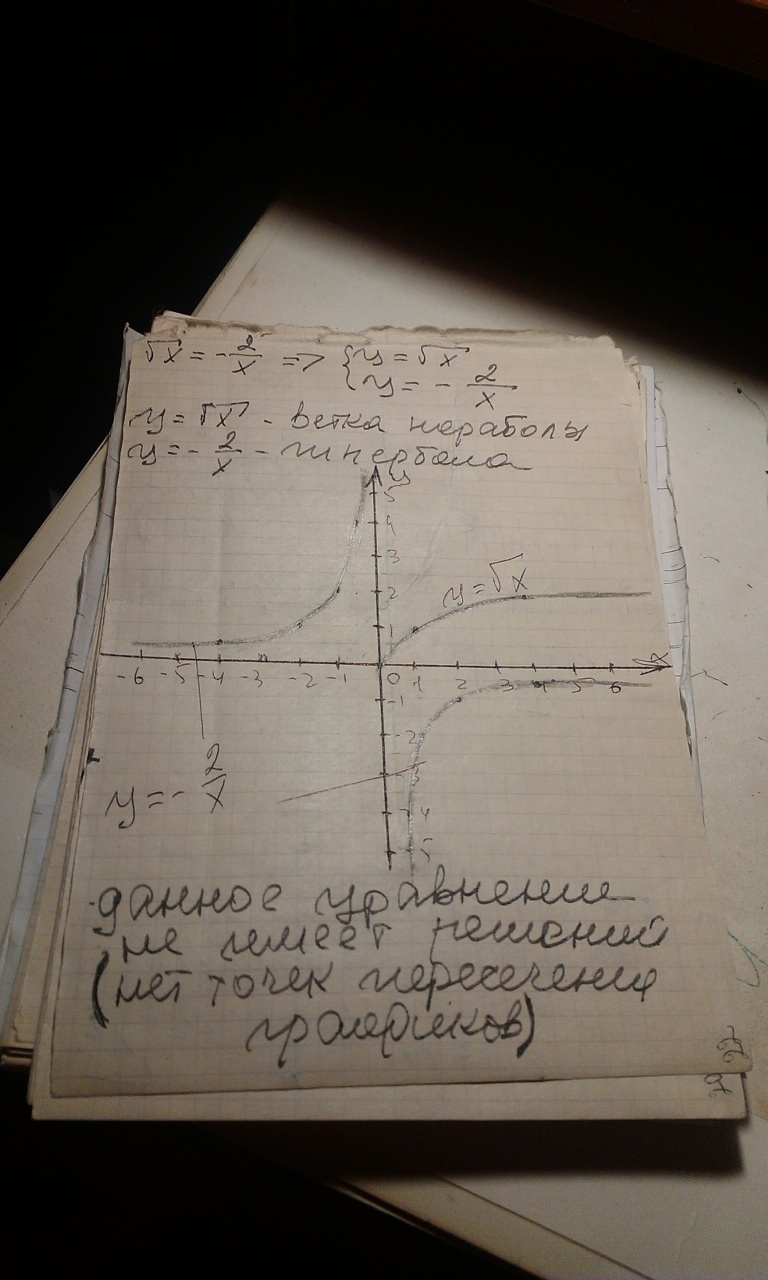 √x = - 2/x => { y = √x
{ y = - 2/x
y = √x - ветка параболы
y = - 2/x - гипербола
y
5
4
3
2
1
y = √x
x
-6 -5 -4 -3 -2 -1 0 1 2 3 4 5 6
-1
-2
-3
-4
-5
y = - 2/x
данное уравнение
не имеет решений
(нет точек пересечения
графиков)